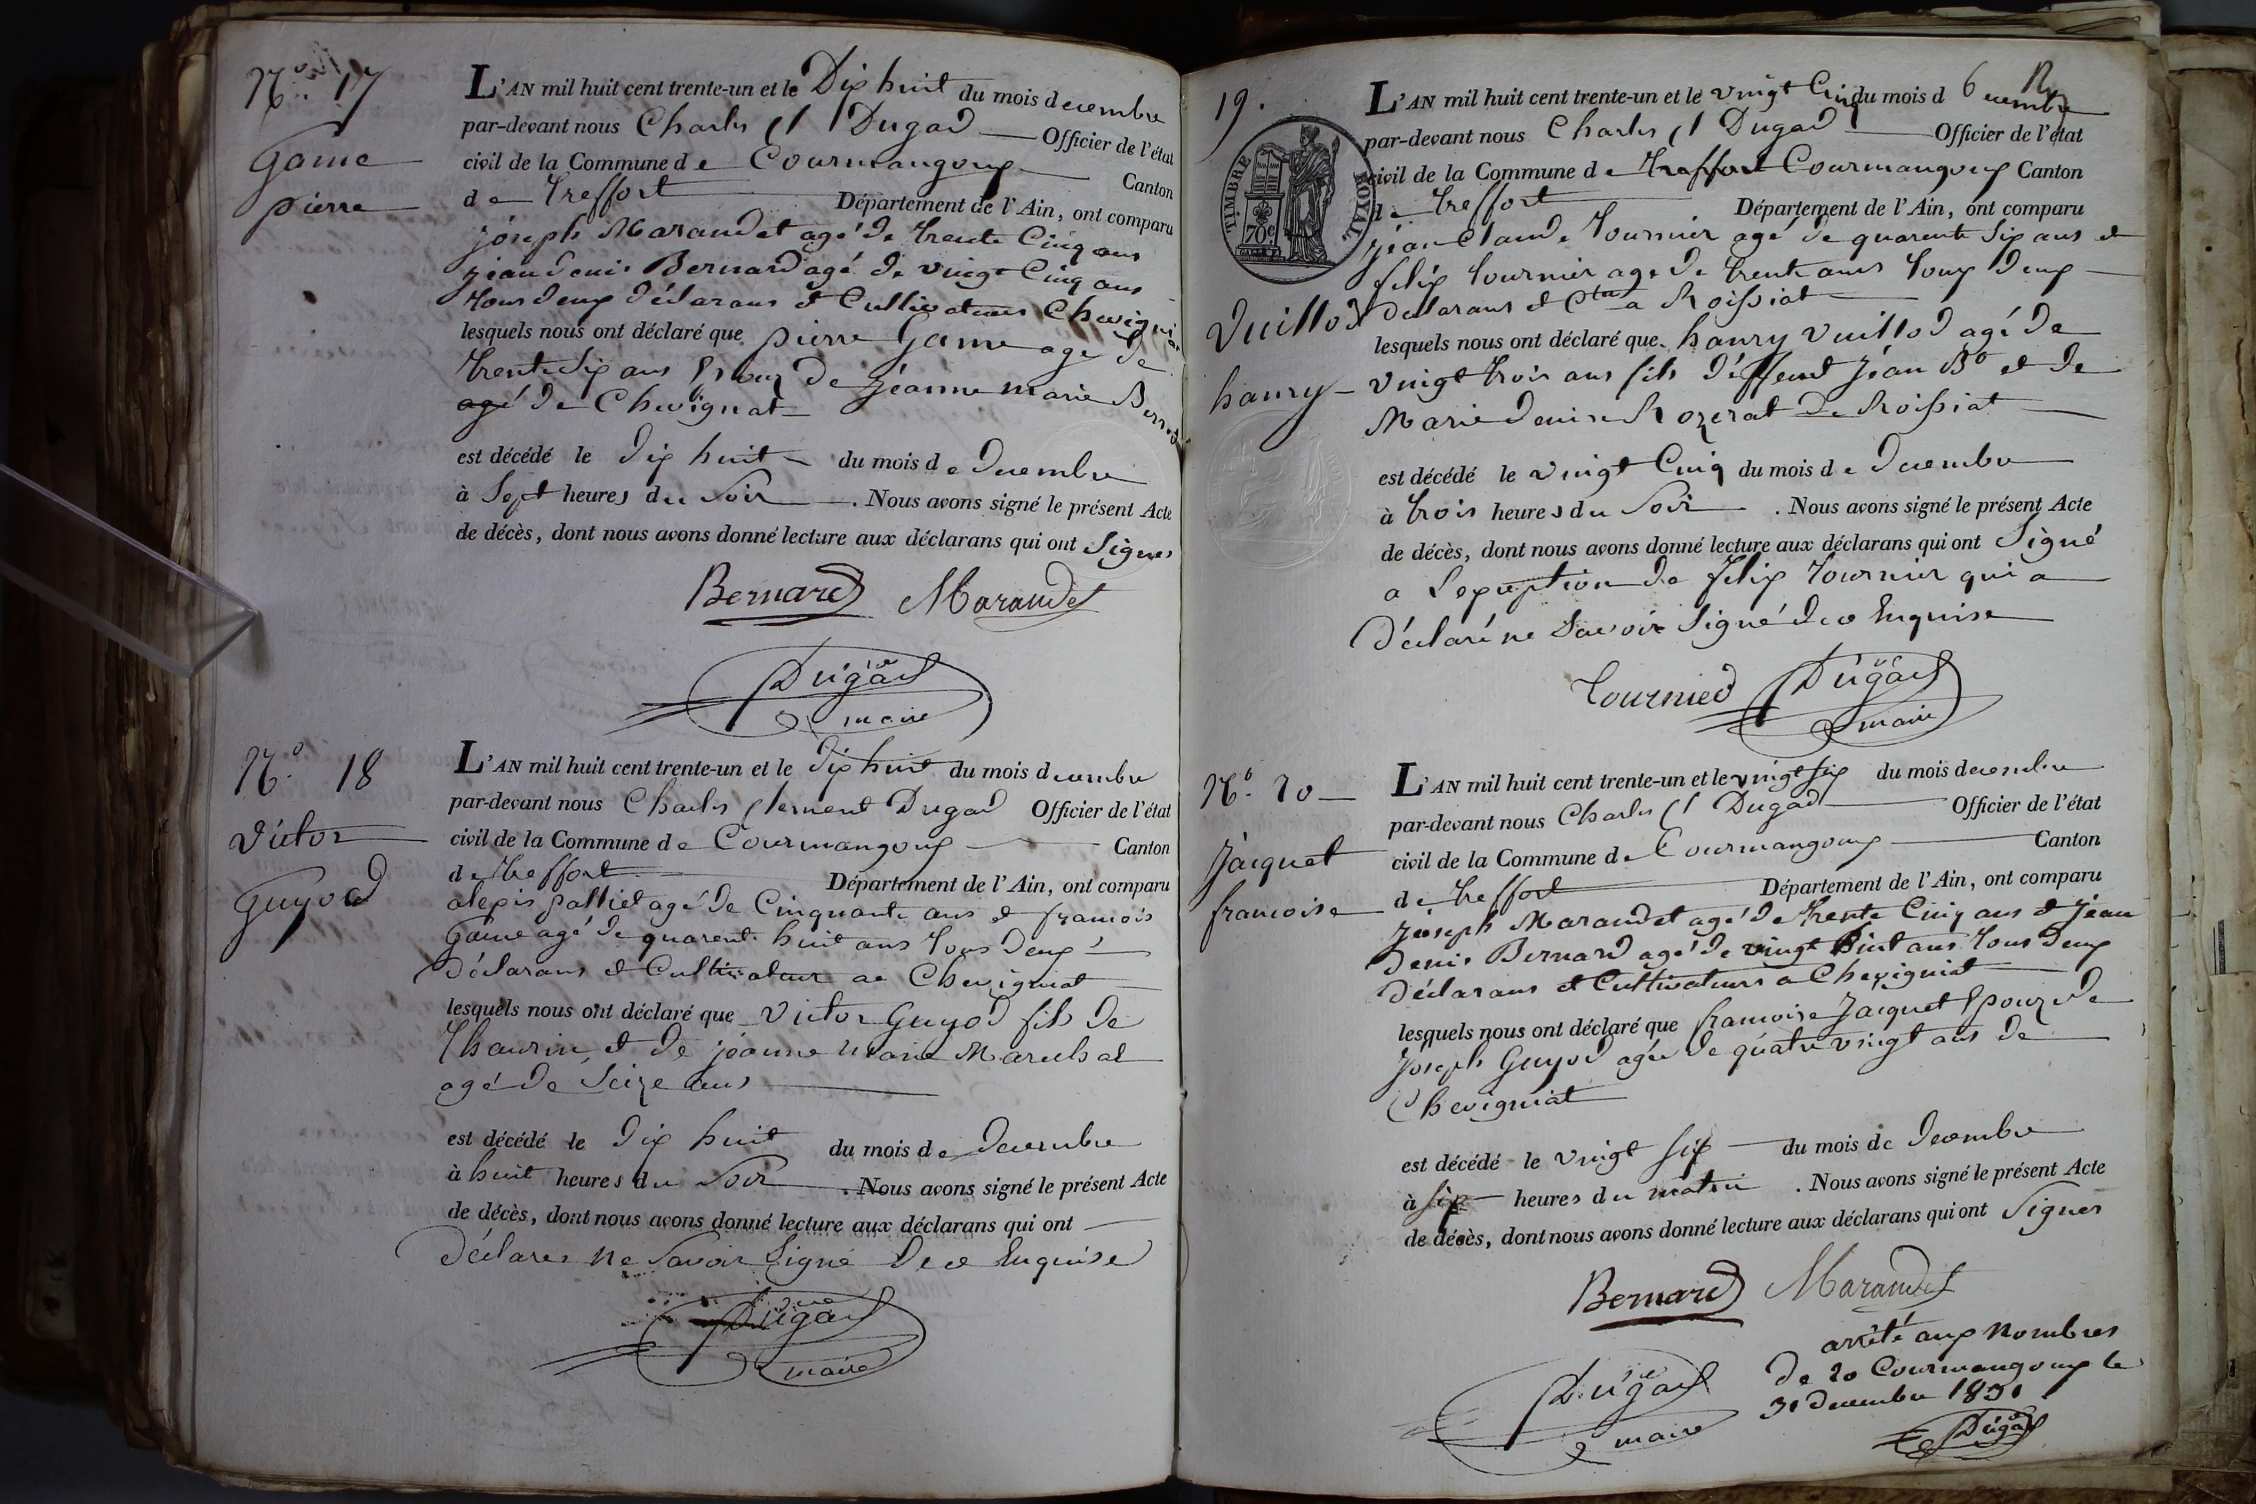 No. 17
Game
pierre
L'AN mil huit cent trente-un et le Dix huit du mois decembre
par-devant nous Charles Ct Dugad Officier de l'état
civil de la Commune de Courmangoux Canton
de treffort Département de l'Ain, ont comparu
joseph Marandet agé de trente Cinq ans
jean denis Bernard agé de vingt Cinq ans
tous deux déclarans et Cultivateurs Chevignia
lesquels nous ont déclaré que pierre Game age de
trente six ans Epoux de jeanne marie Bernard
agé de Chevignat
est décédé le dix huit du mois de decembre
à sept heures du soir . Nous avons signé le présent Acte
de décès, dont nous avons donné lecture aux déclarans qui ont signes
Bernard Marandet
Dugad
maire
No. 18
victor
Guyod
L'AN mil huit cent trente-un et le dix huit du mois decembre
par-devant nous Charles Clement Dugad Officier de l'état
civil de la Commune de Courmangoux Canton
de treffort Département de l'Ain, ont comparu
alexis palliet agé de Cinquante ans et francois
Game agé de quarente huit ans tous deux
déclarans et Cultivateur a Chevigniat
lesquels nous ont déclaré que victor Guyod fils de
Thaurin et de jeanne marie Marechal
agé de seize ans
est décédé le dix huit du mois de decembre
à huit heures du soir . Nous avons signé le présent Acte
de décès, dont nous avons donné lecture aux déclarans qui ont
déclares ne savoir signé de ce Enquise
Dugad
maire
6
19.
TIMBRE ROYAL
70c
Vuillod
hanry
L'AN mil huit cent trente-un et le vingt Cinq du mois decembre
par-devant nous Charles Ct Dugad Officier de l'état
civil de la Commune de treffort Courmangoux Canton
de treffort Département de l'Ain, ont comparu
jean Claude tournier agé de quarente six ans et
felix tournier age de trente ans toux deux
declarans et Cteur a Roissiat
lesquels nous ont déclaré que hanry vuillod agé de
vingt trois ans fils déffeunt jéan Bte et de
Marie denise Rozerat de Roissiat
est décédé le vingt Cinq du mois de decembre
à trois heures du soir . Nous avons signé le présent Acte
de décès, dont nous avons donné lecture aux déclarans qui ont signé
a l'exception de felix tournier qui a
déclaré ne savoir signé de ce Enquise
tournied Dugad
maire
No. 20
jacquet
francoise
L'AN mil huit cent trente-un et le vingt six du mois decembre
par-devant nous Charles Ct Dugad Officier de l'état
civil de la Commune de Courmangoux Canton
de treffort Département de l'Ain, ont comparu
joseph Marandet agé de trente Cinq ans et jean
denis Bernard agé de vingt huit ans tous deux
déclarans et Cultivateurs a Chevigniat
lesquels nous ont déclaré que francoise jacquet Epouze de
joseph Guyod agée de quatre vingt ans de
Chevigniat
est décédé le vingt six du mois de decembre
à six heures du matin . Nous avons signé le présent Acte
de décès, dont nous avons donné lecture aux déclarans qui ont signes
Bernard Marandet
arrêté aux nombres
de 20 Courmangoux le
31 decembre 1831
Dugad
maire
Dugad